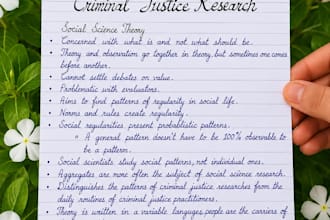 Criminal Justice Research
Social Science Theory
• Concerned with what is and not what should be.
• Theory and observation go together in theory, but sometimes one comes
before another.
• Cannot settle debates on value.
• Problematic with evaluators.
• Aims to find patterns of regularity in social life.
• Norms and rules create regularity.
• Social regularities present probablistic patterns.
o A general pattern doesn't have to be 100% observable to
be a pattern.
• Social scientists study social patterns, not individual ones.
• Aggregates are more often the subject of social science research.
• Distinguishes the patterns of criminal justice researches from the
daily routines of criminal justice practitioners.
• Theory is written in a variable language, people are the carriers of